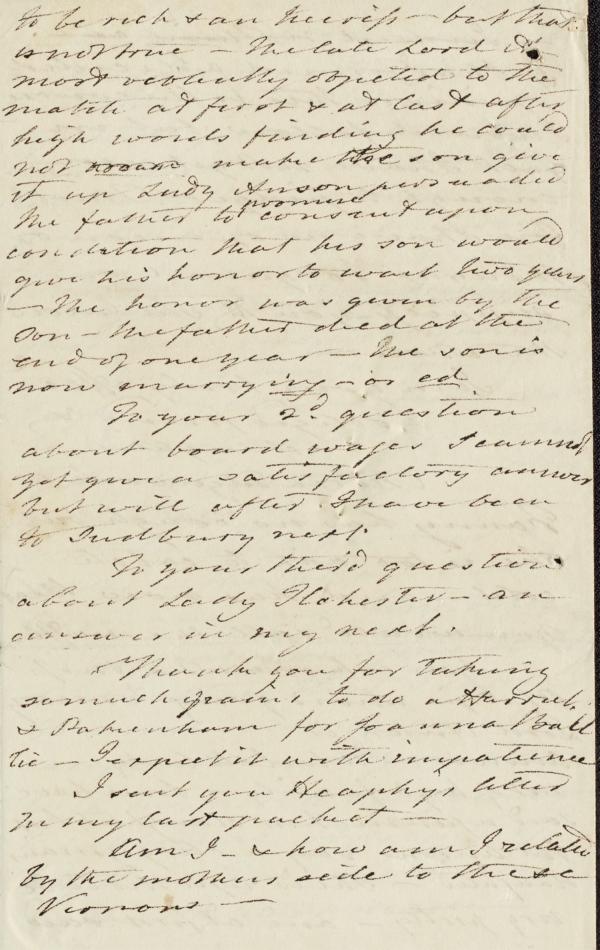 to be rich & an heiress – but that
is not true – The late Lord
most violently objected to the
match at first & at last after
high words finding he could
not make the son give
it up Lady Anson persuaded
the father to promise consent upon
condition that his son would
give his honor to wait two years
– The honor was given by the
son – the father died at the
end of one year – The son is
now marrying – or ed
To your 2d question
about board wages I cannot
yet give a satisfactory answer
but will after I have been
to Sudbury next
To your third question
about Lady Ilchester – an
answer in my next.
Thank you for taking
so much pains to do a Harriet
& Pakenham for Joanna Bail
lie – I expect it with impatience
I sent you Heaphy's letter
in my last packet –
Am I – & how am I related
by the mothers side to these
Vernons –